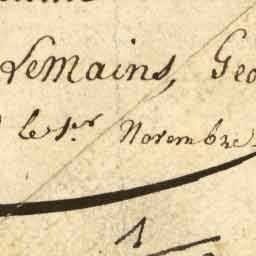 LeMains, Geo
le 1er Novembre
1